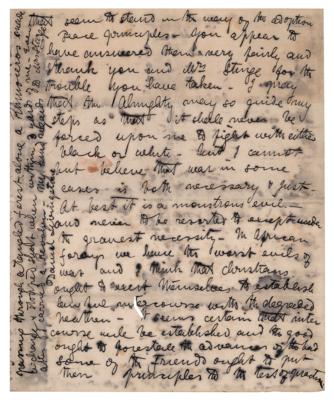 seem to stand in the way of the adoption
peace principles - You appear to
have answered them very fairly and
I thank you and Mrs Sturge for the
trouble you have taken - I pray
that the Almighty may so guide my
steps as that it shall never be
forced upon me to fight with either
black or white - but I cannot
but believe that war in some
cases is both necessary & just -
At best it is a monstrous evil -
and never to be resorted to except under
the gravest necessity - In African
forays we have the worst evils of
war and I think that Christians
ought to exert themselves to establish
lawful intercourse with the degraded
heathen - It seems certain that inter
course will be established and the good
ought to forestall the advances of the bad
some of the Friends ought to put
their principles to the test of practice
passing through a tangled forest along a
received
David Livingstone